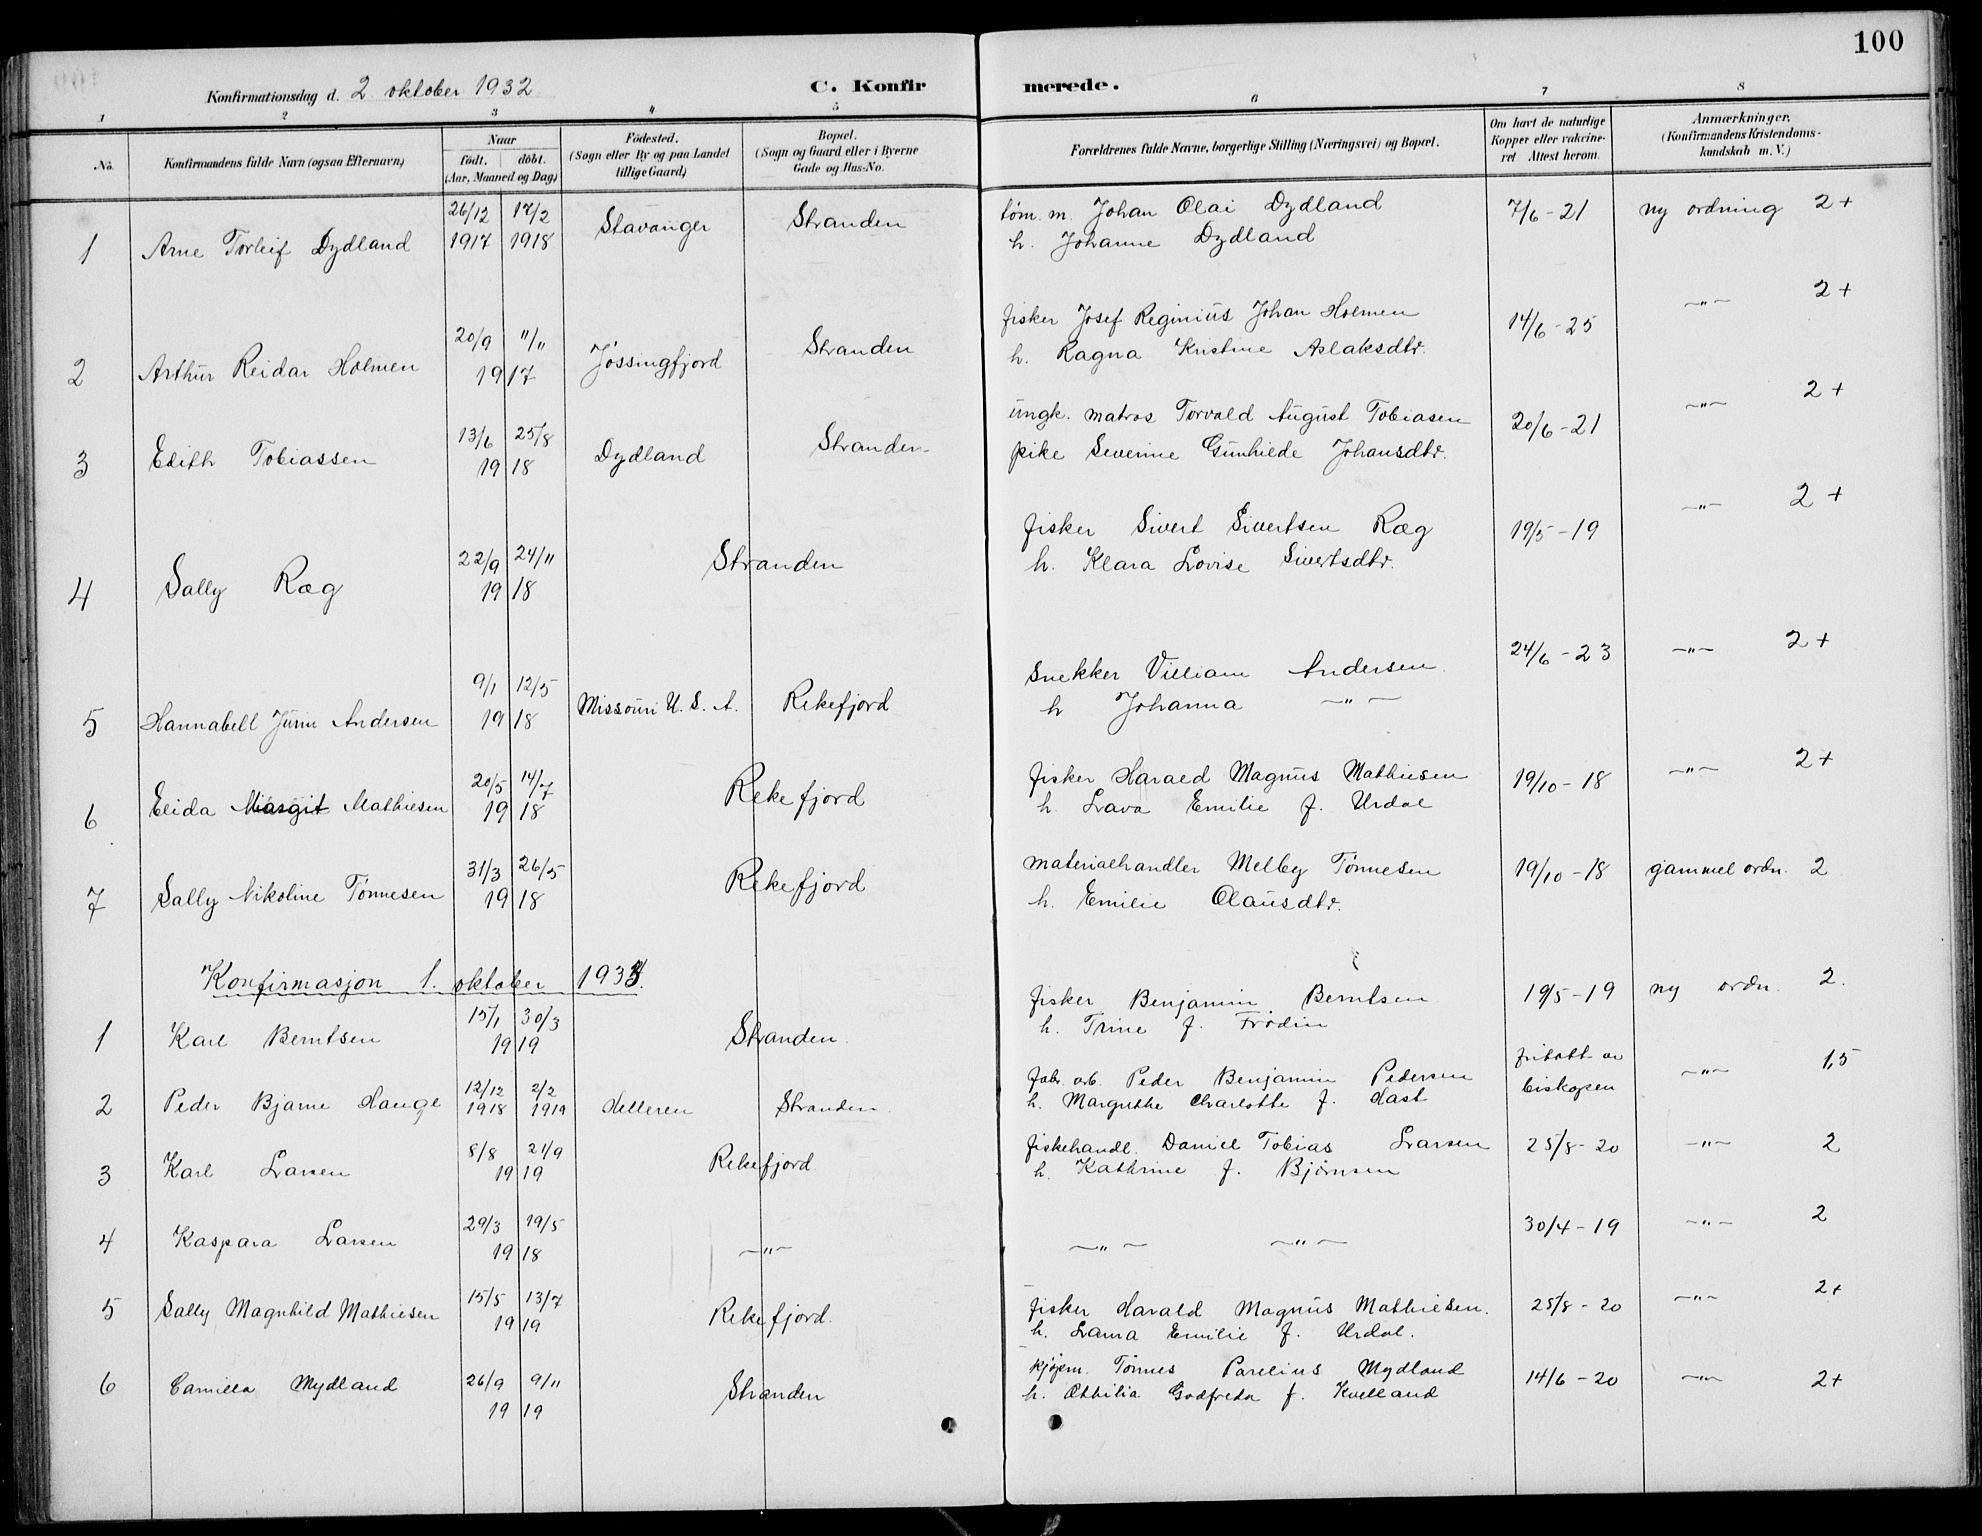 100
Konfirmationsdag d. 2 oktober 1932
C. Konfirmerede.
1 2 3 4 5 6 7 8
No. Konfirmandens fulde Navn (ogsaa Efternavn) Naar født. døbt. (Aar, Maaned og Dag) Fødested. (Sogn eller By og paa Landet tillige Gaard) Bopæl. (Sogn og Gaard eller i Byerne Gade og Hus-No. Forældrenes fulde Navne, borgerlige Stilling (Næringsvei) og Bopæl. Om havt de naturlige Kopper eller vakcineret Attest herom. Anmærkninger. (Konfirmandens Kristendomskundskab m.V.)
1 Arne Torleif Dydland 26/12 1917 17/2 1918 Stavanger Stranden tøm. m. Johan Olai Dydland 7/6-21 ny ordning 2+
h. Johanne Dydland
2 Arthur Reidar Holmen 20/9 11/11 1917 Jøssingfjord Stranden fisker Josef Reginius Johan Holmen 14/6-25 -"- 2+
h. Ragna Kristine Aslaksdtr.
3 Edith Tobiassen 13/6 25/8 1918 Dydland Stranden ungk. matros Torvald August Tobiasen 20/6-21 -"- 2+
pike Severine Gunhilde Johansdtr.
4 Sally Ræg 22/9 24/11 1918 Stranden fisker Sivert Sivertsen Ræg 19/5-19 -"- 2+
h. Klara Lovise Sivertsdtr.
5 Hannabell Andersen 9/1 12/5 1918 Missouri U.S.A. Rekefjord Snekker Villiam Andersen 24/6-23 -"- 2+
h Johanna -"-
6 Elida Margit Mathiesen 20/5 14/7 1918 Rekefjord fisker Harald Magnus Mathiesen 19/10-18 -"- 2+
h. Lava Emilie f. Urdal
7 Sally Nikoline Tønnesen 31/3 26/5 1918 Rekefjord materialhandler Melby Tønnesen 19/10-18 gammel ordn. 2
h. Emilie Olausdtr.
Konfirmasjon 1. oktober 1933.
1 Karl Berntsen 15/1 30/3 1919 Stranden fisker Benjamin Berntsen 19/5-19 ny ordn. 2.
h. Trine f. Frødin
2 Peder Bjarne Hauge 12/12 1918 2/2 1919 Helleren Stranden fabr. arb. Peder Benjamin Pedersen fritatt av biskopen -"- 1,5
h. Margrethe Charlotte f. Hast
3 Karl Larsen 8/8 21/9 1919 Rekefjord fiskehandl. Daniel Tobias Larsen 25/8-20 -"- 2
h. Kathrine f. Bjørnsen
4 Kaspara Larsen 29/3 19/5 1918 -"- -"- -"- 30/4-19 -"- 2
5 Sally Magnhild Mathiesen 15/5 13/7 1919 Rekefjord. fisker Harald Magnus Mathiesen. 25/8-20 -"- 2+
h. Laura Emilie f. Urdal.
6 Camilla Mydland 26/9 9/11 1919 Stranden kjøpm. Tønnes Parelius Mydland 14/6-20 -"- 2+
h. Othilia Godfreda f. Kvelland